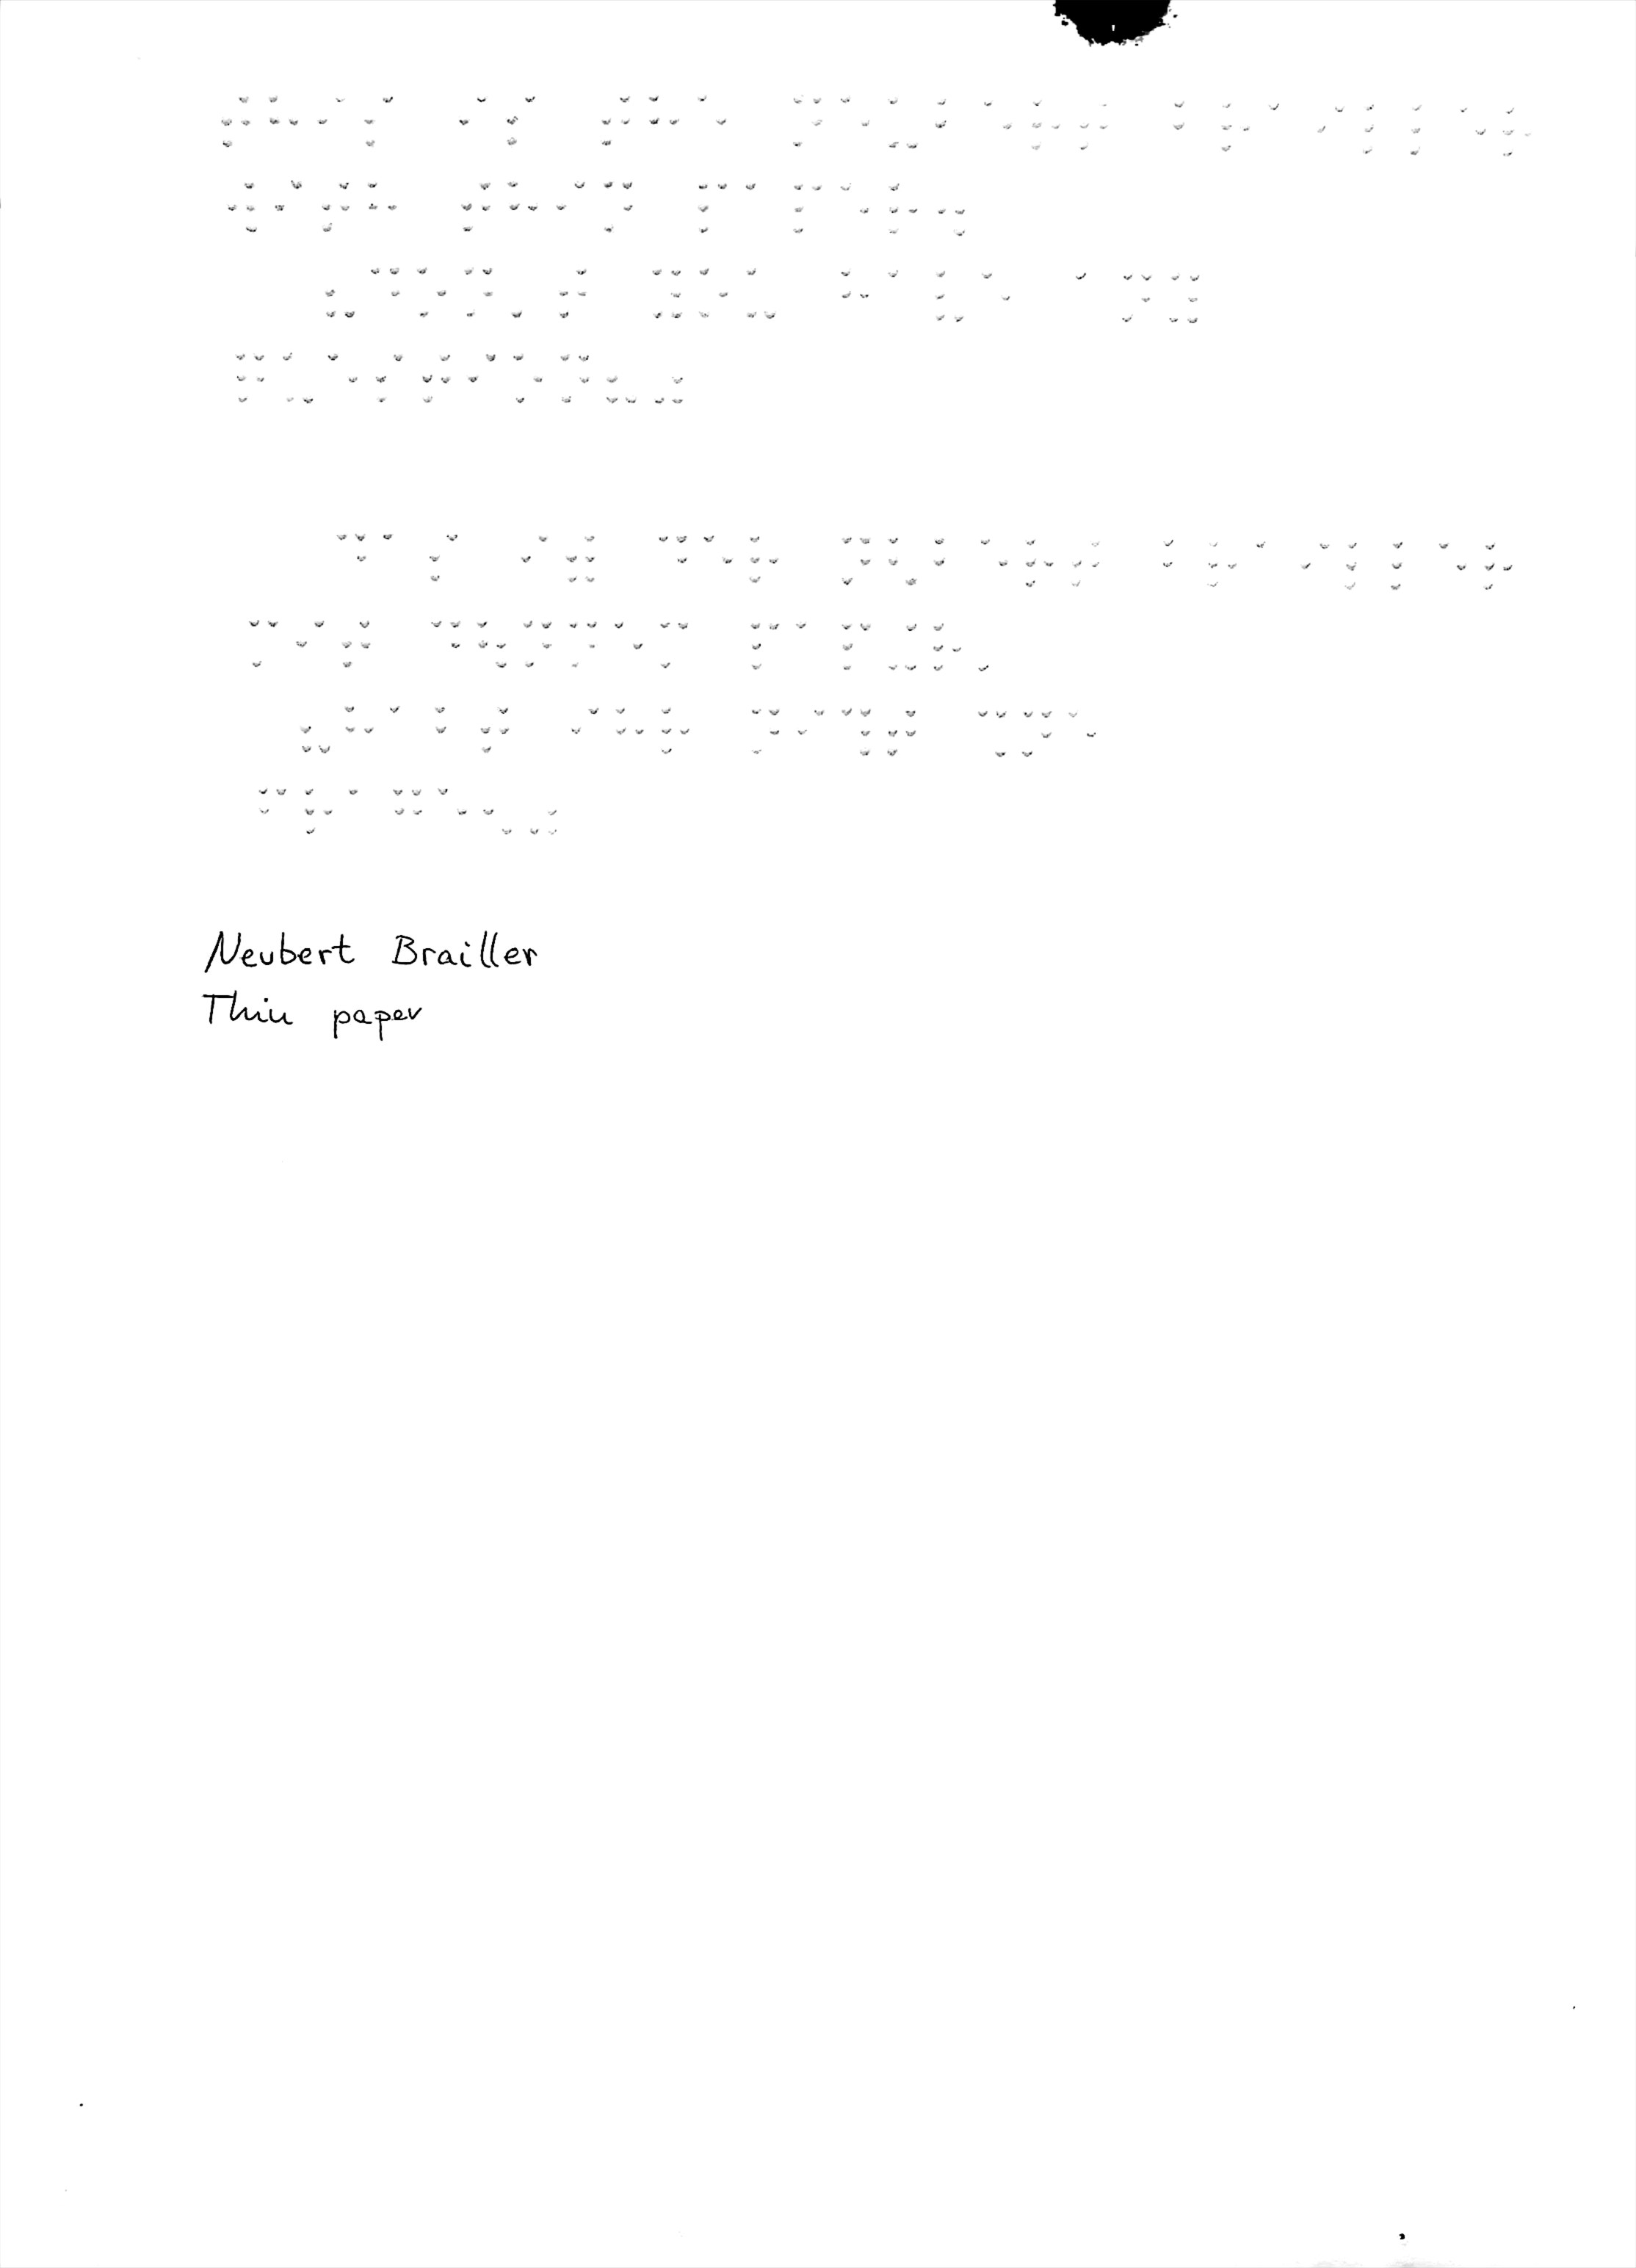 ⠞⠓⠊⠎ ⠊⠎ ⠞⠓⠑ ⠝⠑⠥⠃⠑⠗⠞ ⠃⠗⠁⠊⠇⠇⠑⠗
⠺⠊⠞⠓ ⠞⠓⠊⠝ ⠏⠁⠏⠑⠗⠲
⠦⠙⠕⠝⠄⠞ ⠽⠕⠥ ⠓⠁⠧⠑ ⠁⠝⠽
⠟⠥⠑⠎⠞⠊⠕⠝⠦⠴
⠙⠁⠎ ⠊⠾ ⠙⠑⠗ ⠝⠣⠃⠑⠗⠞ ⠃⠗⠁⠊⠇⠇⠑⠗
⠍⠊⠞ ⠙⠳⠝⠝⠑⠍ ⠏⠁⠏⠬⠗⠄
⠦⠓⠁⠃⠞ ⠊⠓⠗ ⠝⠊⠹⠞ ⠩⠝⠑
⠋⠗⠁⠛⠑⠢⠴
Neubert Brailler
Thin paper